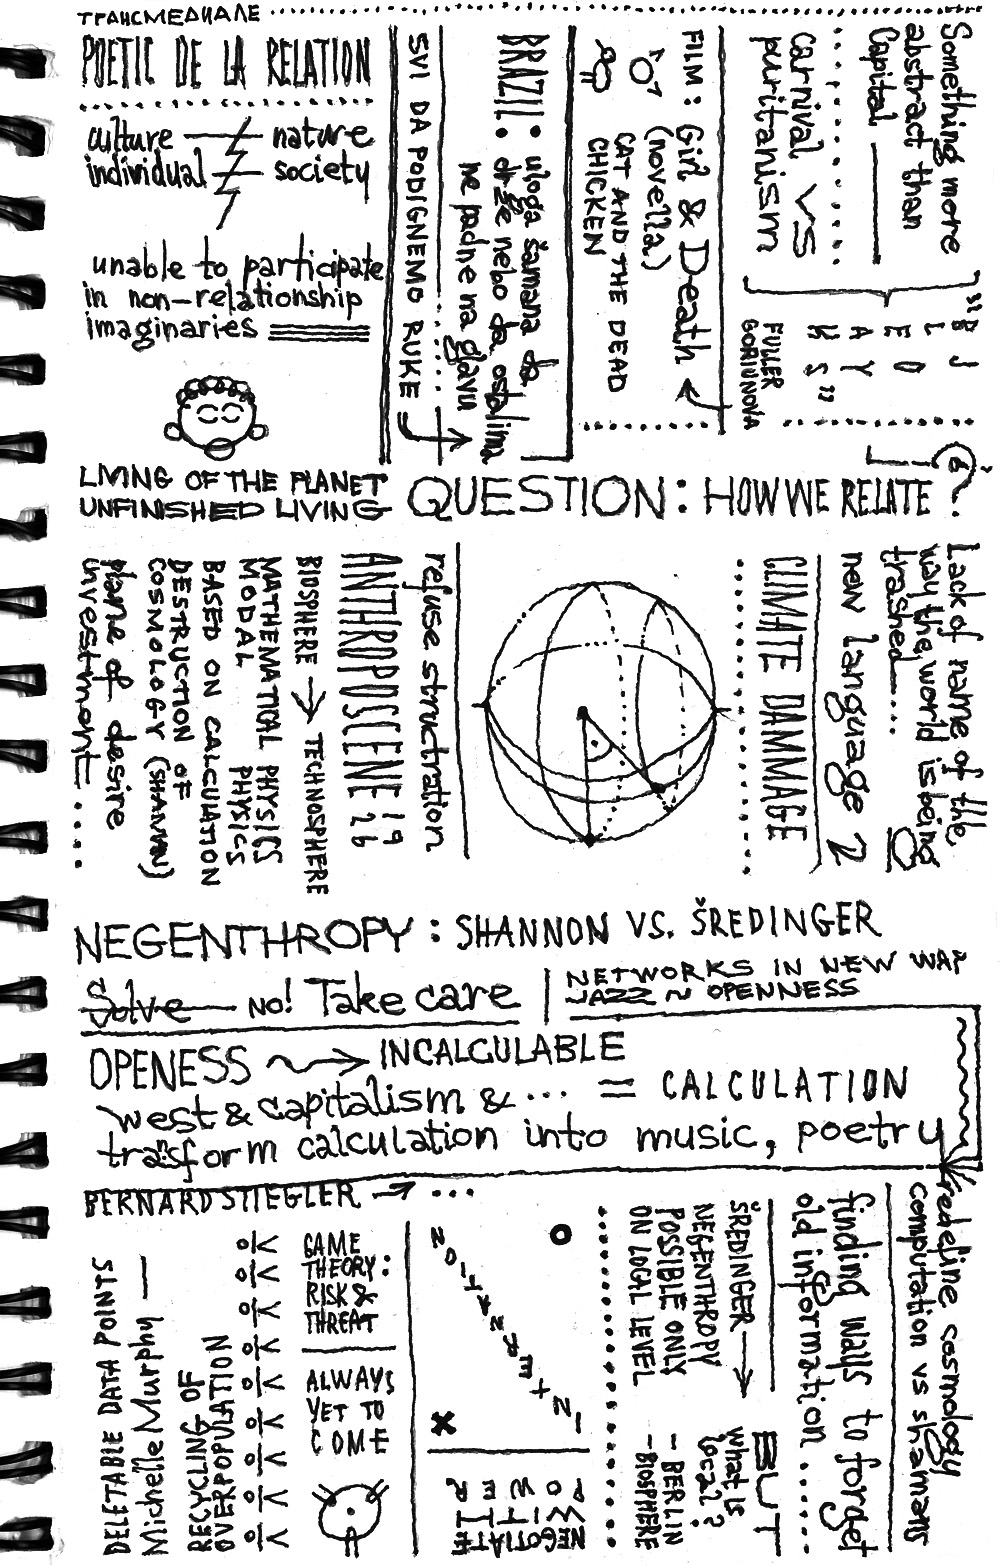 ТРАНСМЕДИАЛЕ
POETIC DE LA RELATION
culture — nature
individual — society
unable to participate
in non-relationship
imaginaries
SVI DA PODIGNEMO RUKE
BRAZIL: uloga šamana da
drže nebo da ostalima
ne padne na glavu
FILM: Girl & Death
(novella)
CAT AND THE DEAD
CHICKEN
Something more
abstract than
Capital
carnival vs
puritanism
"BLEAK
JOYS"
FULLER
GORIUNOVA
LIVING OF THE PLANET
UNFINISHED LIVING
QUESTION: HOW WE RELATE?
Lack of name of the
way the world is being
trashed....
new language 2
CLIMATE DAMMAGE
refuse structration
ANTHROPOSCENE 19
26
BIOSPHERE → TECHNOSPHERE
MATHEMATICAL PHYSICS
MODAL PHYSICS
BASED ON CALCULATION
DESTRUCTION OF
COSMOLOGY (SHAMAN)
plane of desire
investment.....
NEGENTHROPY: SHANNON VS. ŠREDINGER
Solve — NO! Take care
NETWORKS IN NEW WAY
JAZZ ~ OPENNESS
OPENESS → INCALCULABLE
west & capitalism & ... = CALCULATION
transform calculation into music, poetry
BERNARD STIEGLER → ...
redefine cosmology
computation vs shamans
finding ways to forget
old information......
ŠREDINGER →
NEGENTHROPY
POSSIBLE ONLY
ON LOCAL LEVEL
BUT
what is
local?
- BERLIN
- BIOSPHERE
INTERNATION
NEGOTIATE
WITH
POWER
GAME
THEORY:
RISK &
THREAT
ALWAYS
YET TO
COME
RECYCLING OF
OVERPOPULATION
Michelle Murphy —
DELETABLE DATA POINTS